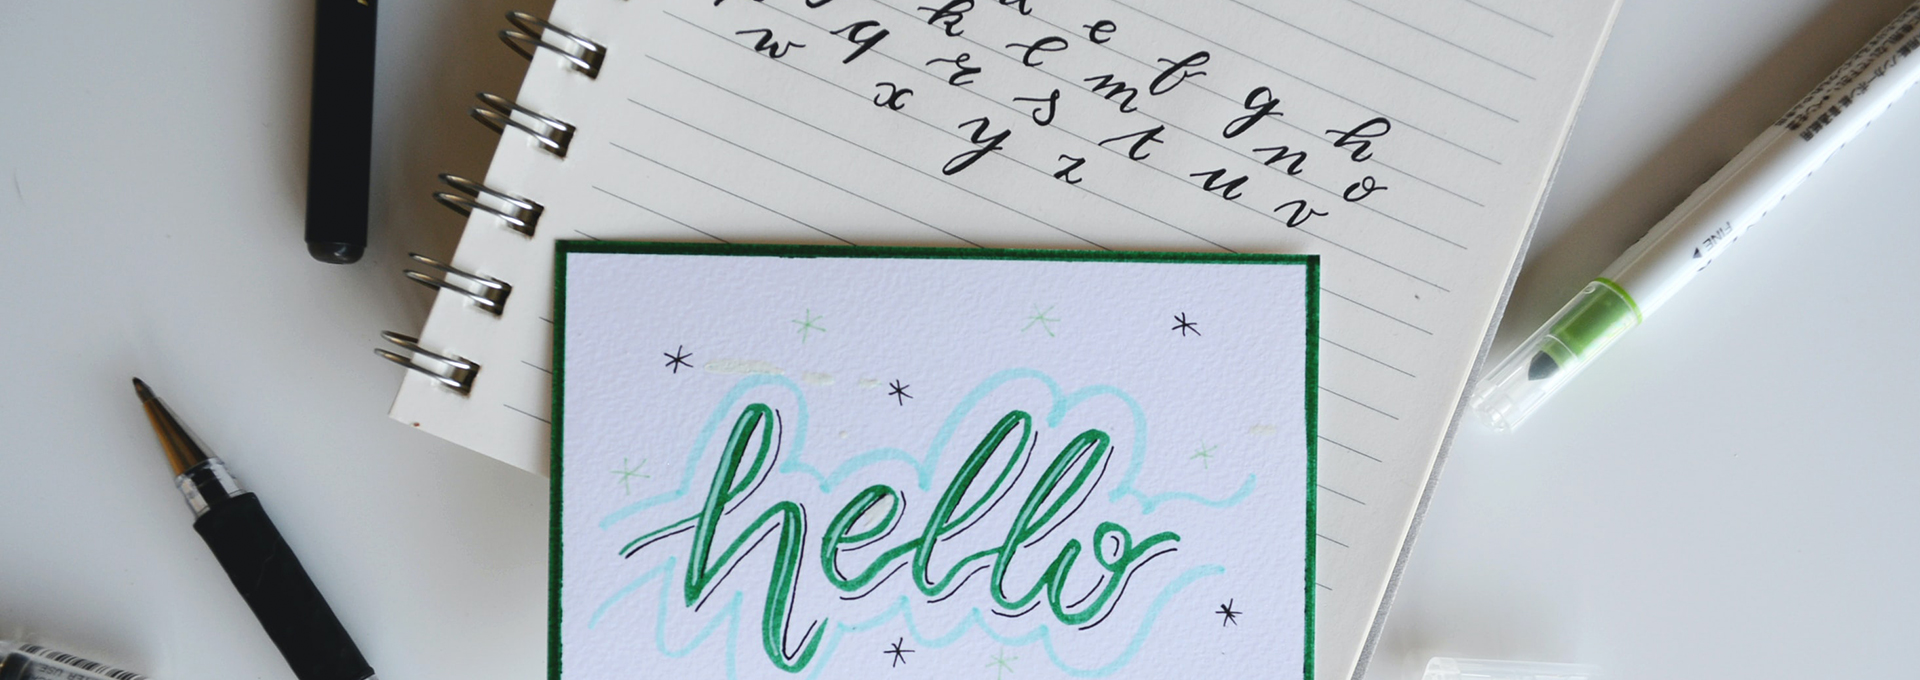 e f g h
k l m n o
q r s t u v
w x y z
hello
FINE